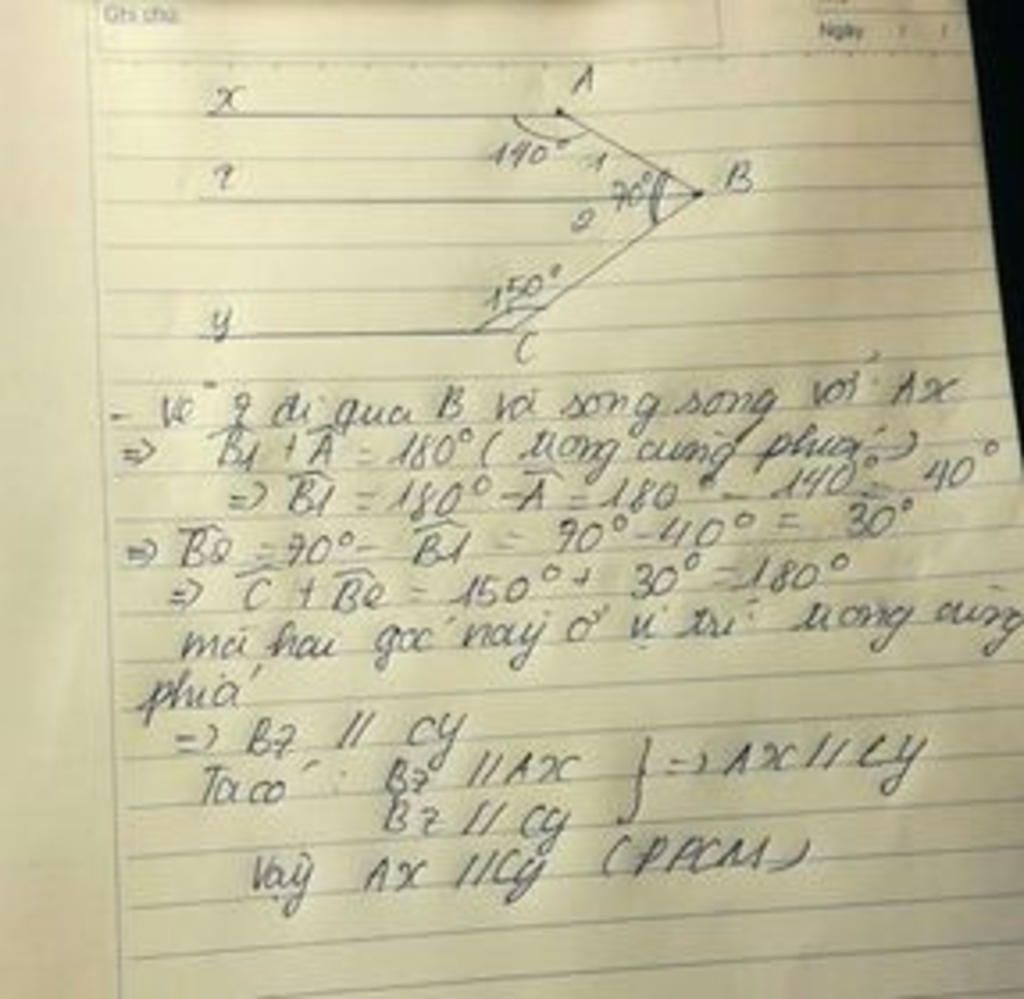 Ghi chú:
Ngày / /
x
A
140°
1
z
70°
B
2
150°
y
C
- Vẽ z đi qua B và song song với Ax
=> B1 + A = 180° (trong cùng phía)
=> B1 = 180° - A = 180° - 140° = 40°
=> B2 = 70° - B1 = 70° - 40° = 30°
=> C + B2 = 150° + 30° = 180°
mà hai góc này ở vị trí trong cùng
phía
=> Bz // Cy
Ta có : Bz // Ax } => Ax // Cy
Bz // Cy
Vậy Ax // Cy (ĐPCM)